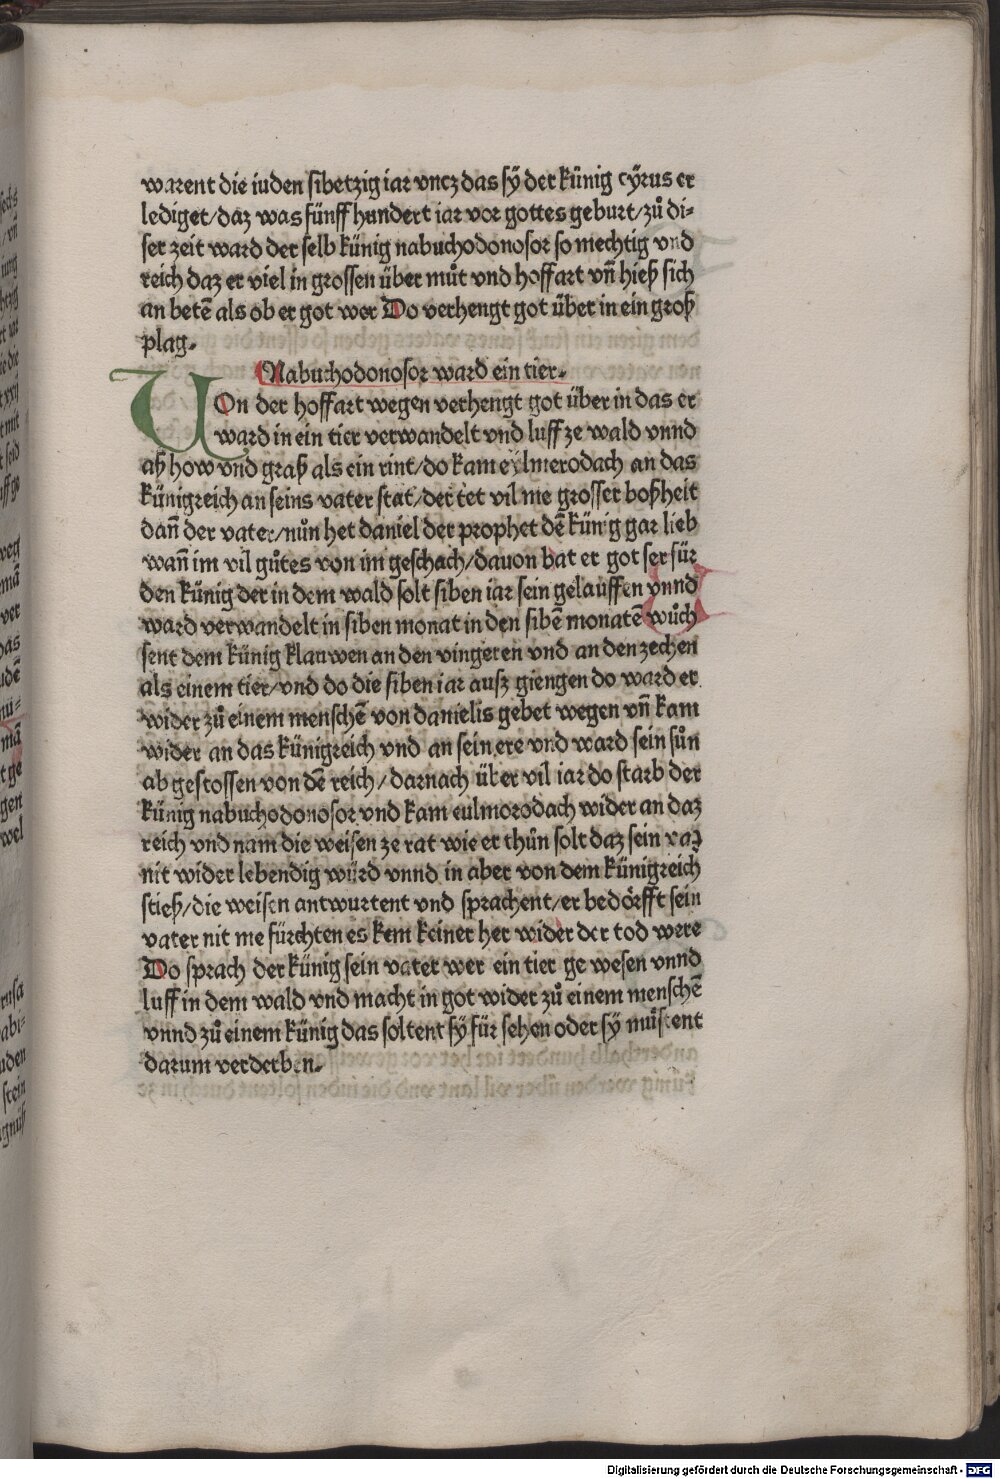 warent die iuden sibetzig iar vncz das sÿ der künig cÿrus er
lediget/daz was fünff hundert iar vor gottes geburt/zů di-
ser zeit ward der selb künig nabuchodonosor so mechtig vnd
reich daz er viel in grossen über můt vnd hoffart vn̄ hieß sich
an betē als ob er got wer Do verhengt got über in ein groß
plag.
Nabuchodonosor ward ein tier.
VOn der hoffart wegen verhengt got über in das er
ward in ein tier verwandelt vnd luff ze wald vnnd
aß how vnd graß als ein rint/do kam eylmerodach an das
künigreich an seins vater stat/der tet vil me grosser boßheit
dan̄ der vater/nůn het daniel der prophet dē künig gar lieb
wan̄ im vil gůtes von im geschach/dauon bat er got ser für
den künig der in dem wald solt siben iar sein gelauffen vnnd
ward verwandelt in siben monat in den sibē monatē wůch
sent dem künig klauwen an den vingeren vnd an den zechen
als einem tier/vnd do die siben iar ausz giengen do ward er
wider zů einem menschē von danielis gebet wegen vn̄ kam
wider an das künigreich vnd an sein ere vnd ward sein sůn
ab gestossen von dē reich/darnach über vil iar do starb der
künig nabuchodonosor vnd kam eulmorodach wider an daz
reich vnd nam die weisen ze rat wie er thůn solt daz sein vať
nit wider lebendig würd vnnd in aber von dem künigreich
stieß/die weisen antwurtent vnd sprachent/er bedörfft sein
vater nit me fürchten es kem keiner her wider der tod were
Do sprach der künig sein vater wer ein tier ge wesen vnnd
luff in dem wald vnd macht in got wider zů einem menschē
vnnd zů einem künig das soltent sÿ für sehen oder sÿ můstent
darum verderben.
Digitalisierung gefördert durch die Deutsche Forschungsgemeinschaft - DFG